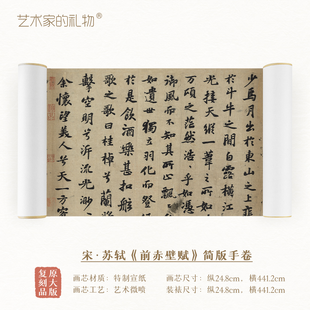 艺术家的礼物®
少焉月出於東山之上
於斗牛之間白露橫江
光接天縱一葦之所
萬頃之茫然浩浩乎
御風而不知其所止飄
如遺世獨立羽化而
於是飲酒樂甚扣舷
歌之歌曰桂棹兮蘭
擊空明兮泝流光渺
余懷望美人兮天一方
宋·苏轼《前赤壁赋》简版手卷
原大版
复刻品
画芯材质：特制宣纸
画芯尺寸：纵24.8cm，横441.2cm
画芯工艺：艺术微喷
装裱尺寸：纵24.8cm，横441.2cm